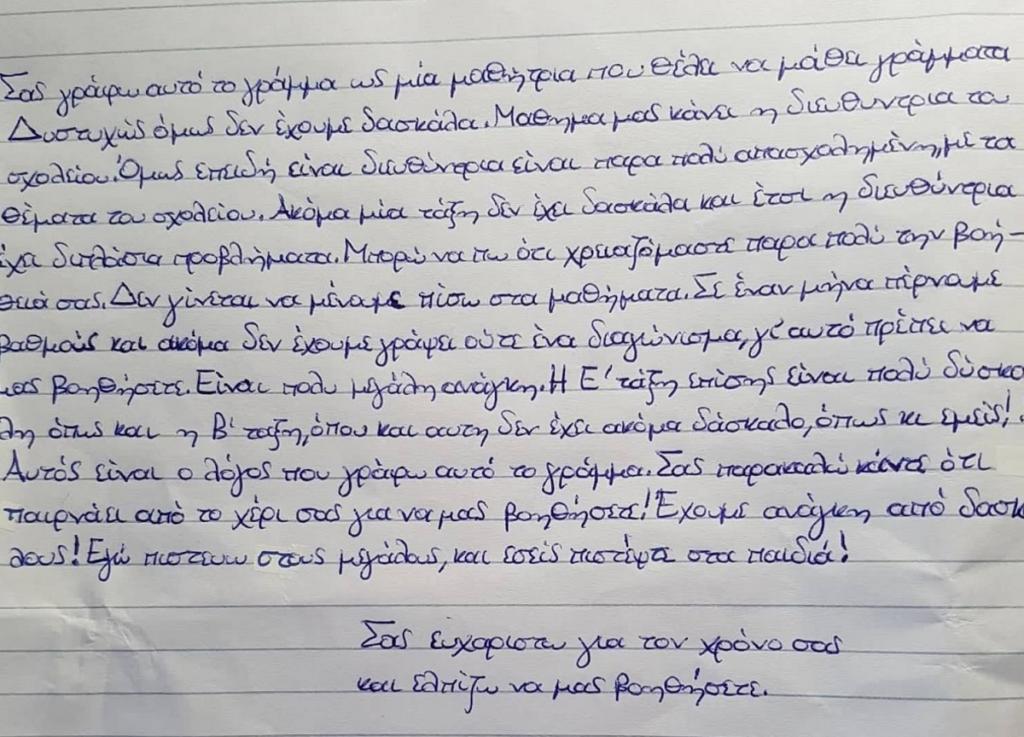 Σας γράφω αυτό το γράμμα ως μία μαθήτρια που θέλει να μάθει γράμματα
Δυστυχώς όμως δεν έχουμε δασκάλα. Μαθημα μας κάνει η διευθυντρια του
σχολείου. Όμως επειδή είναι διευθύντρια είναι παρα πολύ απασχολημένη, με τα
θέματα του σχολείου. Ακόμα μία τάξη δεν έχει δασκάλα και έτσι η διευθύντρια
έχει διπλάσια προβλήματα. Μπορώ να πω ότι χρειαζόμαστε παρα πολύ την βοή-
θειά σας. Δεν γίνεται να μένουμε πίσω στα μαθήματα. Σε έναν μήνα πέρνουμε
βαθμούς και ακόμα δεν έχουμε γράψει ούτε ένα διαγώνισμα, γι' αυτό πρέπει να
μας βοηθήσετε. Είναι πολυ μεγάλη ανάγκη. Η Ε' τάξη επίσης είναι πολύ δύσκο
λη όπως και η Β' ταξη, όπου και αυτη δεν έχει ακόμα δάσκαλο, όπως κι εμείς!.
Αυτός είναι ο λόγος που γράφω αυτό το γράμμα. Σας παρακαλώ κάντε ότι
παιρνάει από το χέρι σας για να μας βοηθήσετε! Έχουμε ανάγκη από δασκ
λους! Εγώ πιστευω στους μεγάλους, και εσείς πιστέψτε στα παιδιά!
Σας ευχαριστω για τον χρόνο σας
και ελπίζω να μας βοηθήσετε.